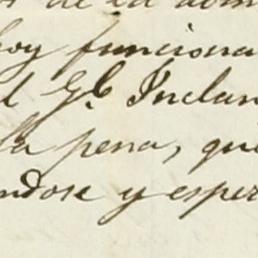 de la
hoy funciona
l Gl. Inclan
la pena, que
endose y esper